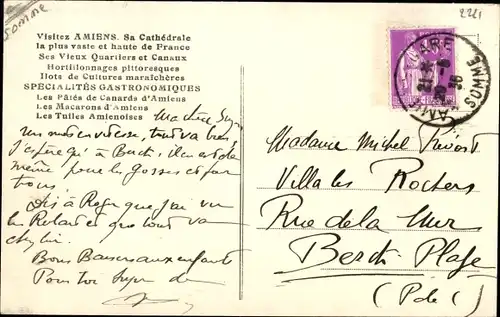 Somme
2221
Visitez AMIENS. Sa Cathédrale
la plus vaste et haute de France
Ses Vieux Quartiers et Canaux
Hortillonnages pittoresques
Ilots de Cultures maraîchères
SPÉCIALITÉS GASTRONOMIQUES
Les Pâtés de Canards d'Amiens
Les Macarons d'Amiens
Les Tuiles Amienoises
GARE
AMIENS
SOMME
Ma chère
tout va bien
J'espère qu'à Berck il en est de
même pour les gosses et
tous.
Dis à Roger que j'ai vu
les et que tout va
Bons Baisers aux enfants
Pour toi
Madame Michel Prévost
Villa les Rochers
Rue de la Mer
Berck-Plage
(P. de C)